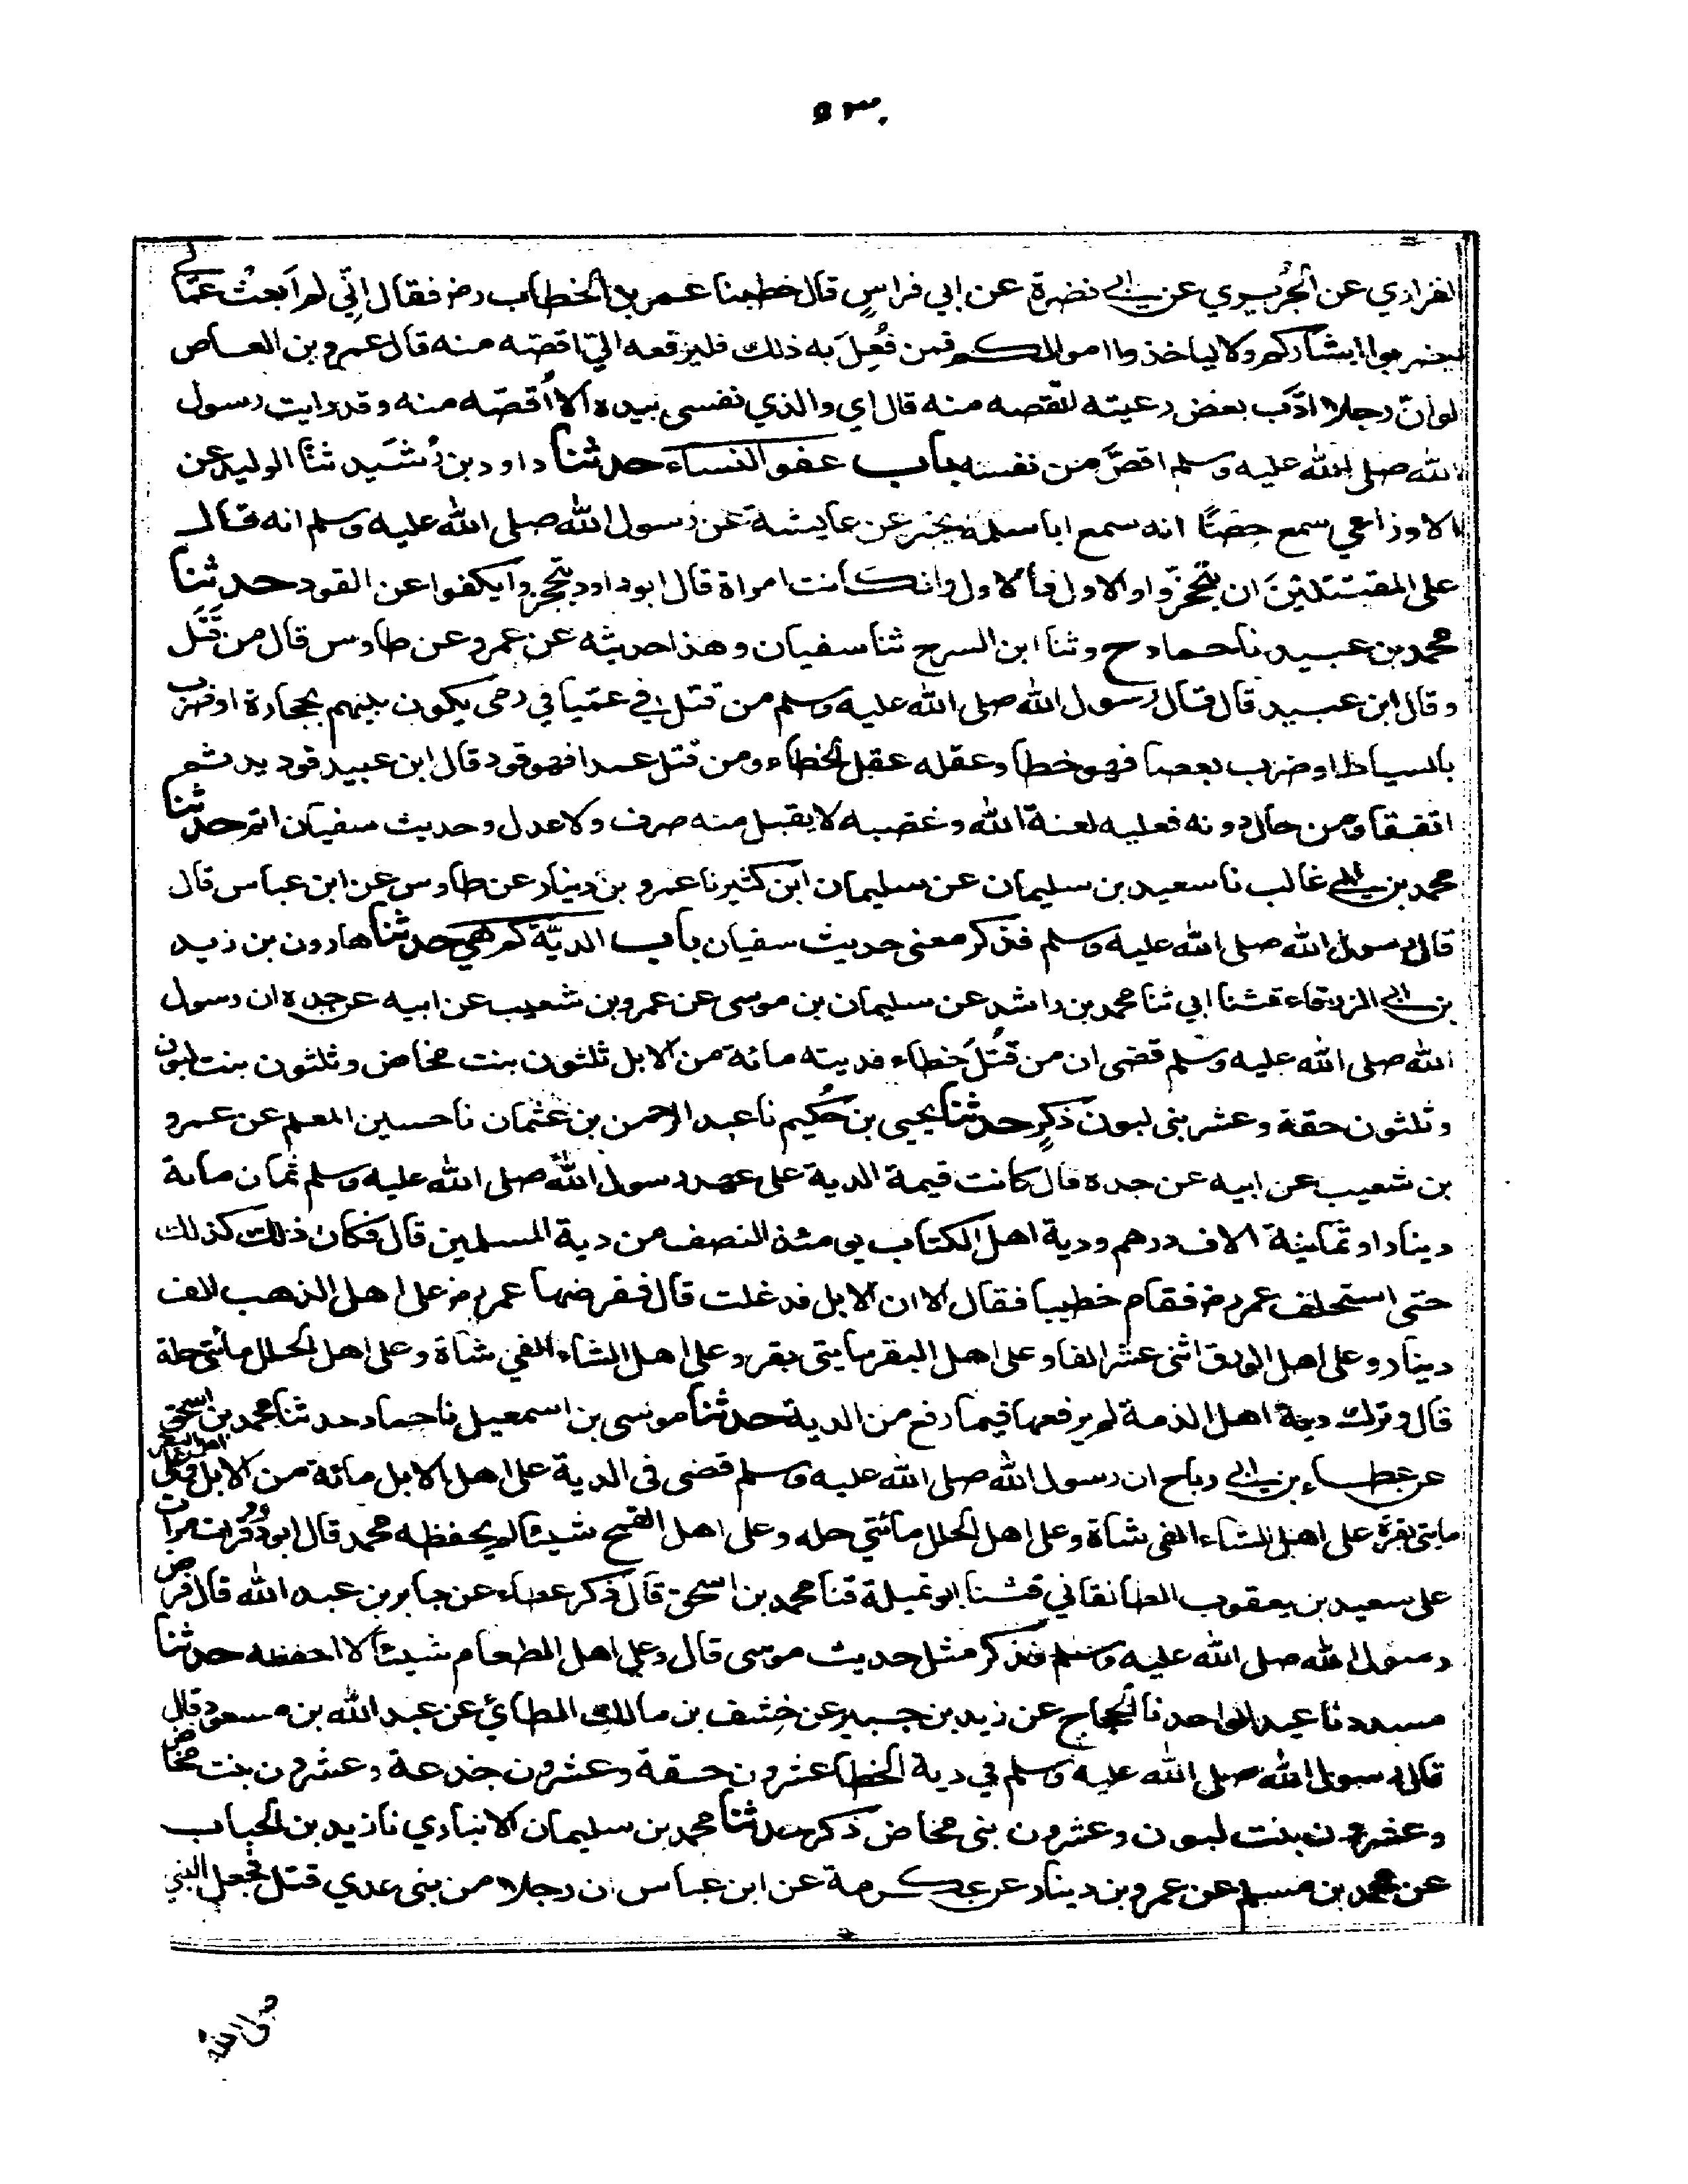 ٥٣٠
الفزاري عن الجُرَيري عن ابي نضرة عن ابي فراسٍ قال خطبنا عمر بن الخطاب رضـ فقال انّي لم اَبعث عمّالي
ليضربوا ابشاركم ولا لياخذوا اموالكم فمن فُعِلَ به ذلك فليرفعه اليّ اقصّه منه قال عمرو بن العاص
لو انّ رجلا ادّب بعض رعيته اتقصه منه قال اي والذي نفسي بيده الا اُقصّه منه وقد رايت رسول
الله صلى الله عليه وسلم اقصَّ من نفسه باب عفو النساء حدثنا داود بن رُشَيد ثنا الوليد عن
الاوزاعي سمع حِصنًا انه سمع ابا سلمة يخبر عن عايشة عن رسول الله صلى الله عليه وسلم انه قال
على المقتتلينَ ان ينحجزّوا الاول فالاول وان كانت امراة قال ابو داود ينحجزوا يكفوا عن القود حدثنا
محمد بن عبيد نا حماد ح وثنا ابن السرح ثنا سفيان وهذا حديثه عن عمرو عن طاوس قال من قُتِل
وقال ابن عبيد قال قال رسول الله صلى الله عليه وسلم من قتل في عمّيا في رمى يكون بينهم بحجارة او ضرب
بالسياط او ضرب بعصا فهو خطأ وعقله عقل الخطاء ومن قتل عمدا فهو قود قال ابن عبيد قود يد ثم
اتفقا ومن حال دونه فعليه لعنة الله وغضبه لا يقبل منه صرف ولا عدل وحديث سفيان اتم حدثنا
محمد بن ابي غالب نا سعيد بن سليمان عن سليمان ابن كثير نا عمرو بن دينار عن طاوس عن ابن عباس قال
قال رسول الله صلى الله عليه وسلم فذكر معنى حديث سفيان باب الديّة كم هي حدثنا هارون بن زيد
بن ابي الزرقاء قثنا ابي ثنا محمد بن راشد عن سليمان بن موسى عن عمرو بن شعيب عن ابيه عن جده ان رسول
الله صلى الله عليه وسلم قضى ان من قُتلَ خطاء فديته مائة من الابل ثلثون بنت مخاض وثلثون بنت لبون
وثلثون حقة وعشر بنى لبون ذكرٍ حدثنا يحيى بن حُكيم نا عبد الرحمن بن عثمان نا حسين المعلم عن عمرو
بن شعيب عن ابيه عن جده قال كانت قيمة الدية على عهد رسول الله صلى الله عليه وسلم ثمان ماية
دينار او ثمانية الاف درهم ودية اهل الكتاب يومئذ النصف من دية المسلمين قال فكان ذلك كذلك
حتى استخلف عمر رضـ فقام خطيبا فقال الا ان الابل قد غلت قال ففرضها عمر رضـ على اهل الذهب الف
دينار وعلى اهل الورق اثنى عشر الفا وعلى اهل البقر مايتى بقر وعلى اهل الشاء الفى شاة وعلى اهل الحلل مائتى حلة
قال وترك دية اهل الذمة لم يرفعها فيما رفع من الدية حدثنا موسى بن اسمعيل نا حماد حدثنا محمد بن اسحق
عن عطاء بن ابي رباح ان رسول الله صلى الله عليه وسلم قضى فى الدية على اهل الابل مائة من الابل وعلى اهل البقر
مايتى بقرَة على اهل الشاء الفى شاة وعلى اهل الحلل مائتي حله وعلى اهل القمح شيئا لم يحفظه محمد قال ابو داود قرات
على سعيد بن يعقوب الطالقاني قثنا ابو تميلة قثنا محمد بن اسحق قال ذكر عطاء عن جابر بن عبد الله قال فرض
رسول الله صلى الله عليه وسلم فذكر مثل حديث موسى قال وعلى اهل الطعام شيئا لا احفظه حدثنا
مسدد نا عبد الواحد نا الحجاج عن زيد بن جبير عن خِشف بن مالك الطائي عن عبد الله بن مسعود قال
قال رسول الله صلى الله عليه وسلم في دية الخطا عشرون حقة وعشرون جذعة وعشرون بنت مخاض
وعشرون بنت لبون وعشرون بنى مخاض ذكر حدثنا محمد بن سليمان الانباري نا زيد بن الحباب
عن محمد بن مسلم عن عمرو بن دينار عن عكرمة عن ابن عباس ان رجلا من بنى عدي قتل فجعل النبي